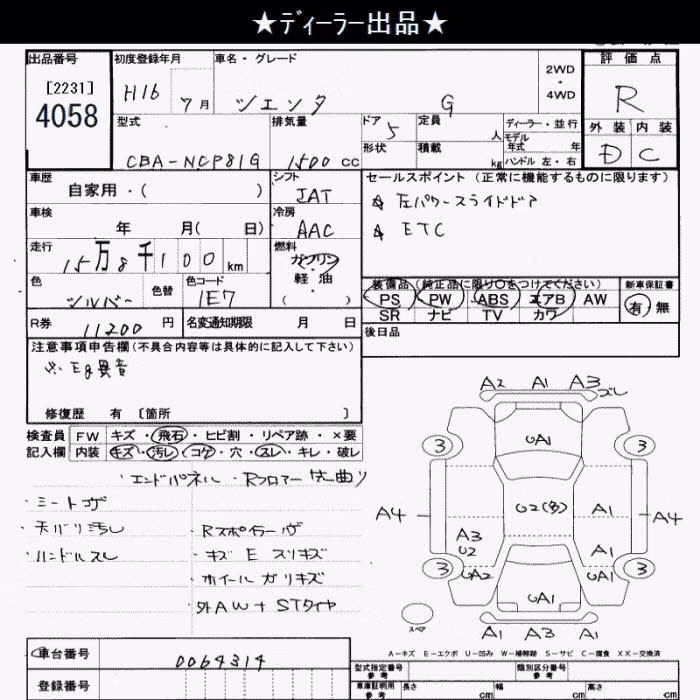 ★ディーラー出品★
出品番号
[2231]
4058
初度登録年月
H16 7月
車名・グレード
シエンタ G
2WD
・
4WD
評価点
R
外装 内装
D C
型式
CBA-NCP81G
排気量
1500 cc
ドア 5
形状
定員 人
積載 kg
ディーラー・並行
モデル年式 年
ハンドル 左・右
車歴
自家用・( )
シフト
IAT
セールスポイント (正常に機能するものに限ります)
☆ 左パワースライドドア
☆ ETC
車検
年 月( 日)
冷房
AAC
走行
15万8千100 km
燃料
ガソリン
・
軽油
( )
色
シルバー
色替
色コード
1E7
装備品 (純正品に限り○をつけてください)
PS PW ABS エアB AW
SR ナビ TV カワ
新車保証書
有 無
R券 11200 円
名変通知期限 月 日
後日品
注意事項申告欄(不具合内容等は具体的に記入して下さい)
※ Eg異音
修復歴 有 〔箇所 〕
検査員記入欄
FW キズ・飛石・ヒビ割・リペア跡・×要
内装 キズ・汚レ・コゲ・穴・スレ・キレ・破レ
・エンドパネル ・Rフロアー 曲り
・シートコゲ
・天バリ汚レ
・ハンドルスレ
・Rスポイラーヴ
・キズ E スリキズ
・ホイールガリキズ
・外AW+STタイヤ
A2 A1 A3 ズレ
3 UA1 3
A4 U2(多) A1 A4
A3 U2 A1
3 UA2 UA1 3
UA1
スペア
A1 A3 A1
A-キズ E-エクボ U-凹み W-補修跡 S-サビ C-腐食 XX-交換済
車台番号
0064314
登録番号
型式指定番号 参考
類別区分番号 参考
車庫証明用 参考 長さ cm 幅 cm 高さ cm